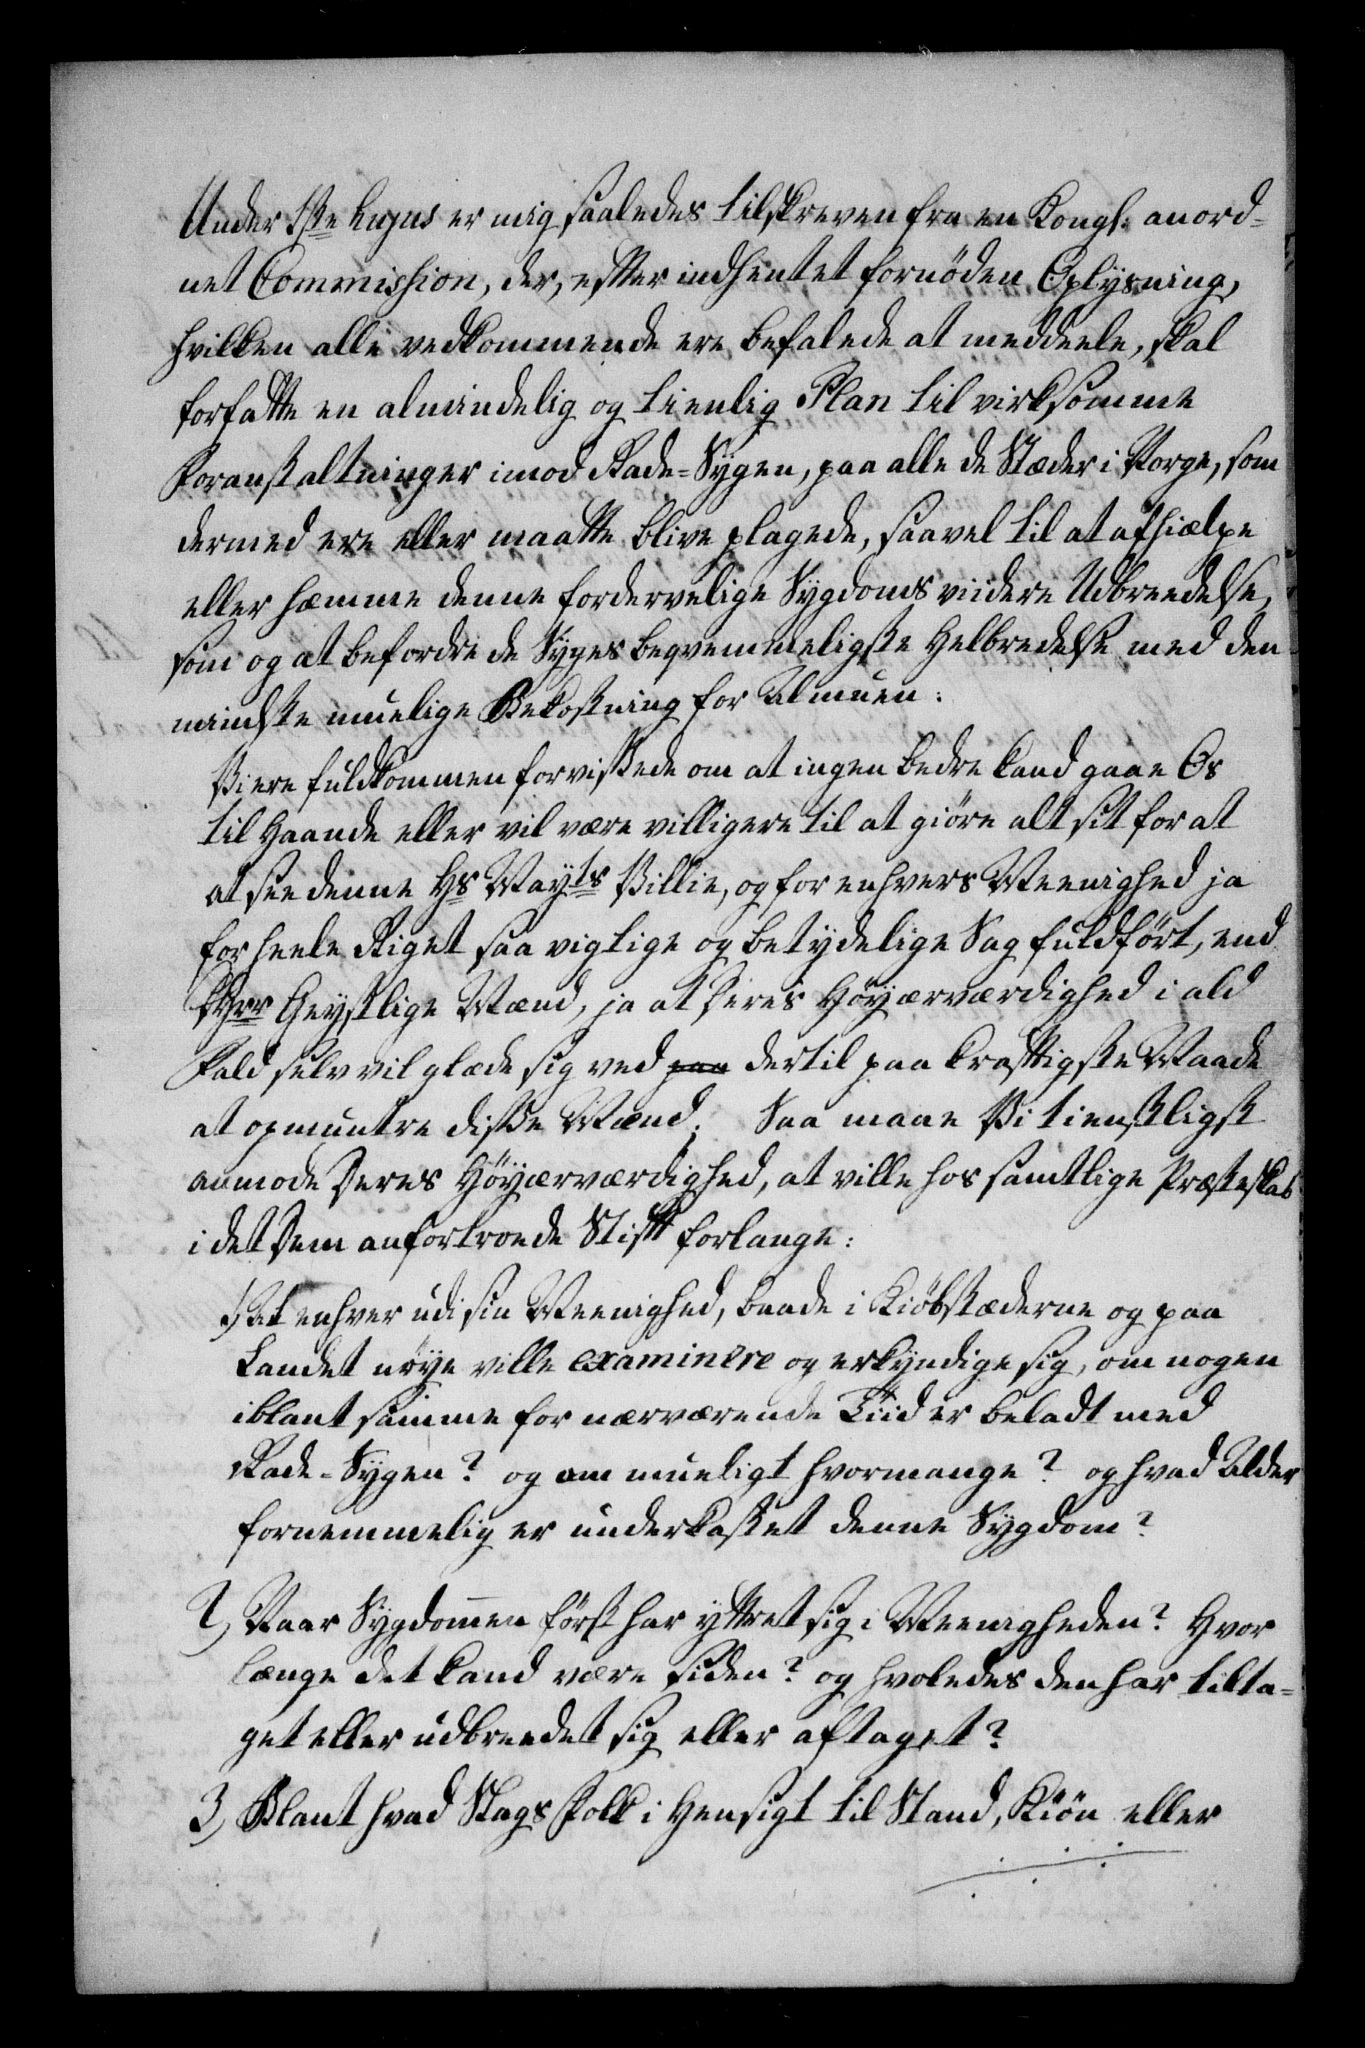 Under 1ste hujus er mig saaledes tilskreven fra en Kongl. anord-
net Commission, der, efter indhentet fornöden Oplysning,
hvilken alle vedkommende ere befalede at meddeele, skal
forfatte en almindelig og tienlig Plan til virksomme
Foranstaltninger imod Rade-Sygen, paa alle de Stæder i Norge, som
dermed ere eller maatte blive plagede, saavel til at afhiælpe
eller hæmme denne fordervelige Sygdoms viidere Udbreedelse,
som og at befordre de Syges beqvemmeligste Helbredelse med den
mindste muelige Bekostning for Almuen:
Vi ere fuldkommen forvissede om at ingen bedre kand gaae Os
til Haande eller vil være villigere til at giöre alt sit for at
at see denne Hs Mayts Villie, og for enhvers Meenighed ja
for heele Riget saa vigtige og betydelige Sag fuldfört, end
Geystlige Mænd, ja at Deres Höyærværdighed i ald
Fald selv vil glæde sig ved paa dertil paa kraftigste Maade
at opmuntre disse Mænd. Saa maae Vi tienstligst
anmode Deres Höyærværdighed, at ville hos samtlige Præsteskab
i det Dem anfortroede Stift forlange:
1) At enhver udi sin Meenighed, baade i Kiöbstæderne og paa
Landet nöye ville examinere og erkyndige sig, om nogen
iblant samme for nærværende Tiid er beladt med
Rade-Sygen? og om mueligt hvormange? og hvad Alder
fornemmelig er underkastet denne Sygdom?
2) Naar Sygdommen först har yttret sig i Meenigheden? Hvor
længe det kand være siden? og hvoledes den har tilta-
get eller udbreedet sig eller aftaget?
3) Blant hvad Slags Folk i Hensigt til Stand, Kiön eller